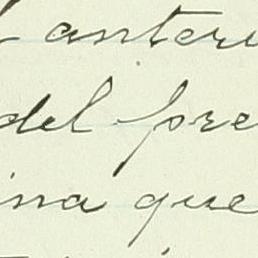 l anteri
del pre
ina que